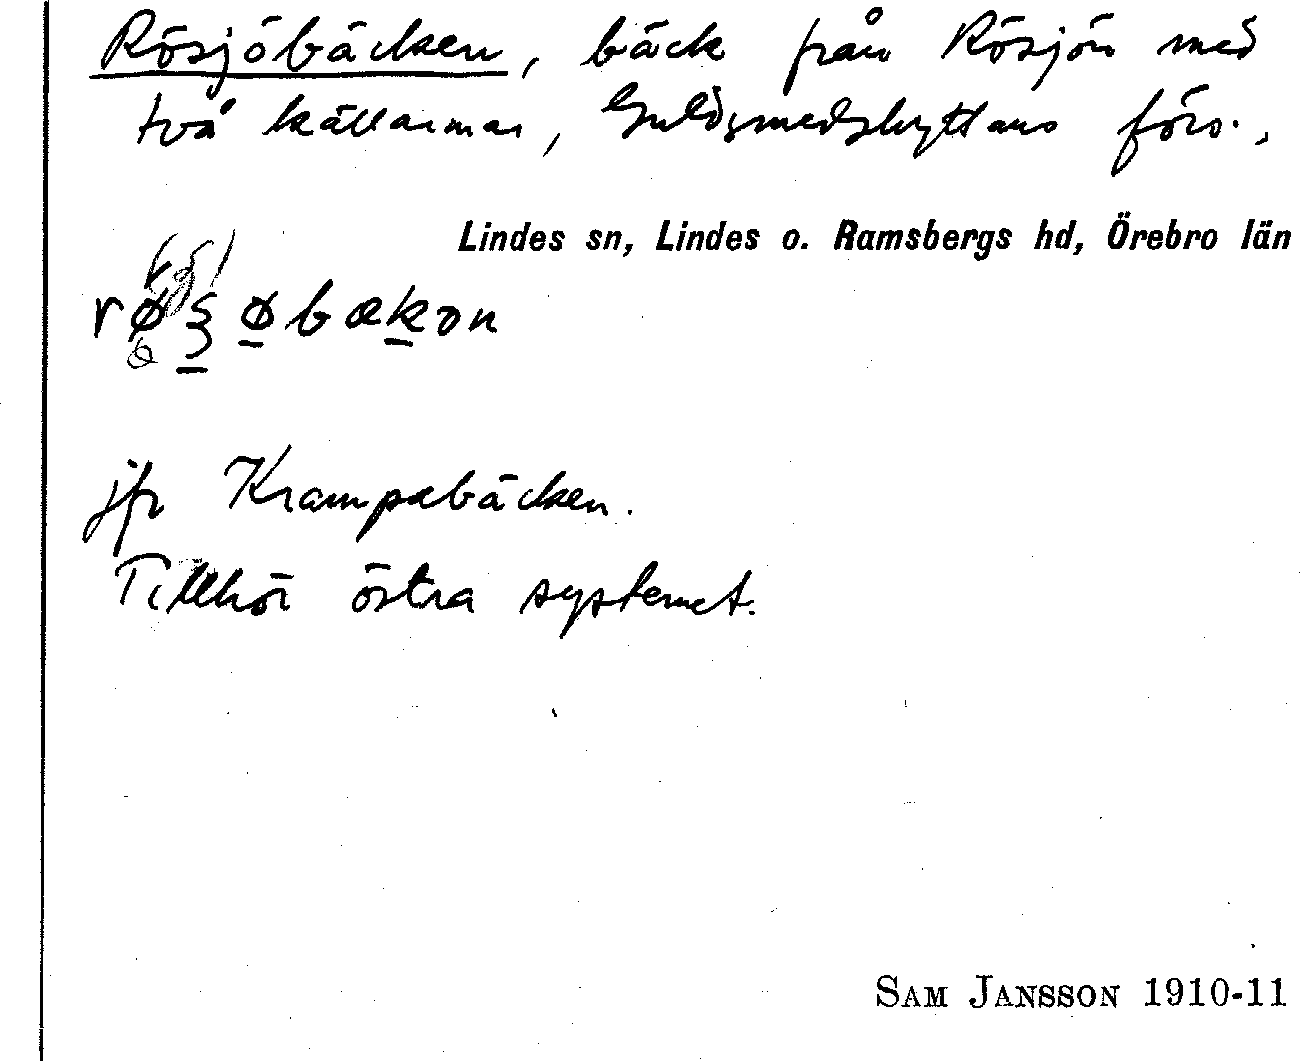 Rösjöbäcken, bäck från Rösjön med
två källarmar, Guldsmedshyttans förs.,
Lindes sn, Lindes o. Ramsbergs hd, Örebro län
jfr Krampebäcken.
Tillhör östra systemet.
SAM JANSSON 1910-11